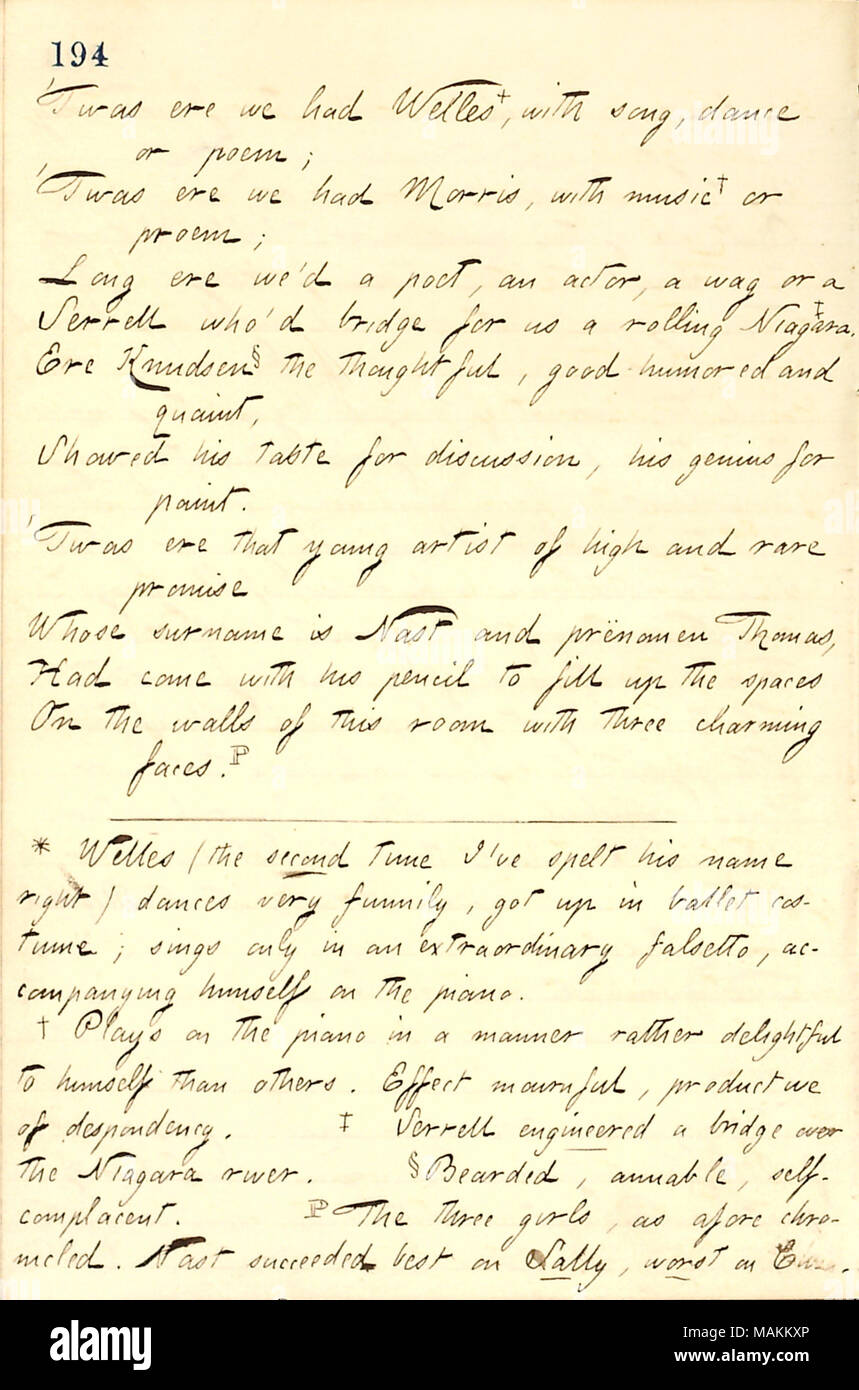 194
'Twas ere we had Welles†, with song, dance
or poem;
'Twas ere we had Morris, with music† or
proem;
Long ere we'd a poet, an actor, a wag or a
Serrell who'd bridge for us a rolling Niagara.‡
Ere Knudsen§ the thoughtful, good-humored and
quaint,
Showed his taste for discussion, his genius for
paint.
'Twas ere that young artist of high and rare
promise
Whose surname is Nast and prënomen Thomas,
Had come with his pencil to fill up the spaces
On the walls of this room with three charming
faces.P
* Welles (the second time I've spelt his name
right) dances very funnily, got up in ballet cos-
tume; sings only in an extraordinary falsetto, ac-
companying himself on the piano.
† Plays on the piano in a manner rather delightful
to himself than others. Effect mournful, productive
of despondency. ‡ Serrell engineered a bridge over
the Niagara river. § Bearded, amiable, self-
complacent. P The three girls, as afore chro-
nicled. Nast succeeded best on Sally, worst on
alamy
Image ID: MAKKXP
www.alamy.com